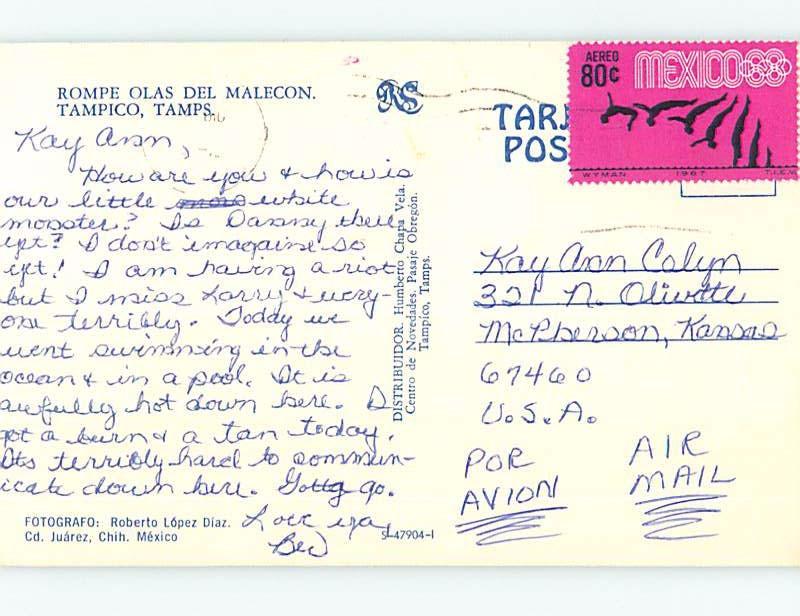 ROMPE OLAS DEL MALECON.
TAMPICO, TAMPS.
Kay Ann,
How are you & how is
our little white
monster? Is Danny there
yet? I don't imagine so
yet! I am having a riot
but I miss Larry & every-
one terribly. Today we
went swimming in the
ocean & in a pool. It is
awfully hot down here. I
got a burn & a tan today.
Its terribly hard to commun-
icate down here. Gotta go.
Love ya,
Bev
FOTOGRAFO: Roberto López Díaz.
Cd. Juárez, Chih. México
S-47904-1
DISTRIBUIDOR. Humberto Chapa Vela.
Centro de Novedades. Pasaje Obregón.
Tampico, Tamps.
TARJ
POS
AEREO
80¢
MEXICO68
WYMAN 1967 T.I.E.V.
Kay Ann Colyn
321 N. Olivette
McPherson, Kansas
67460
U.S.A.
POR AVION
AIR MAIL